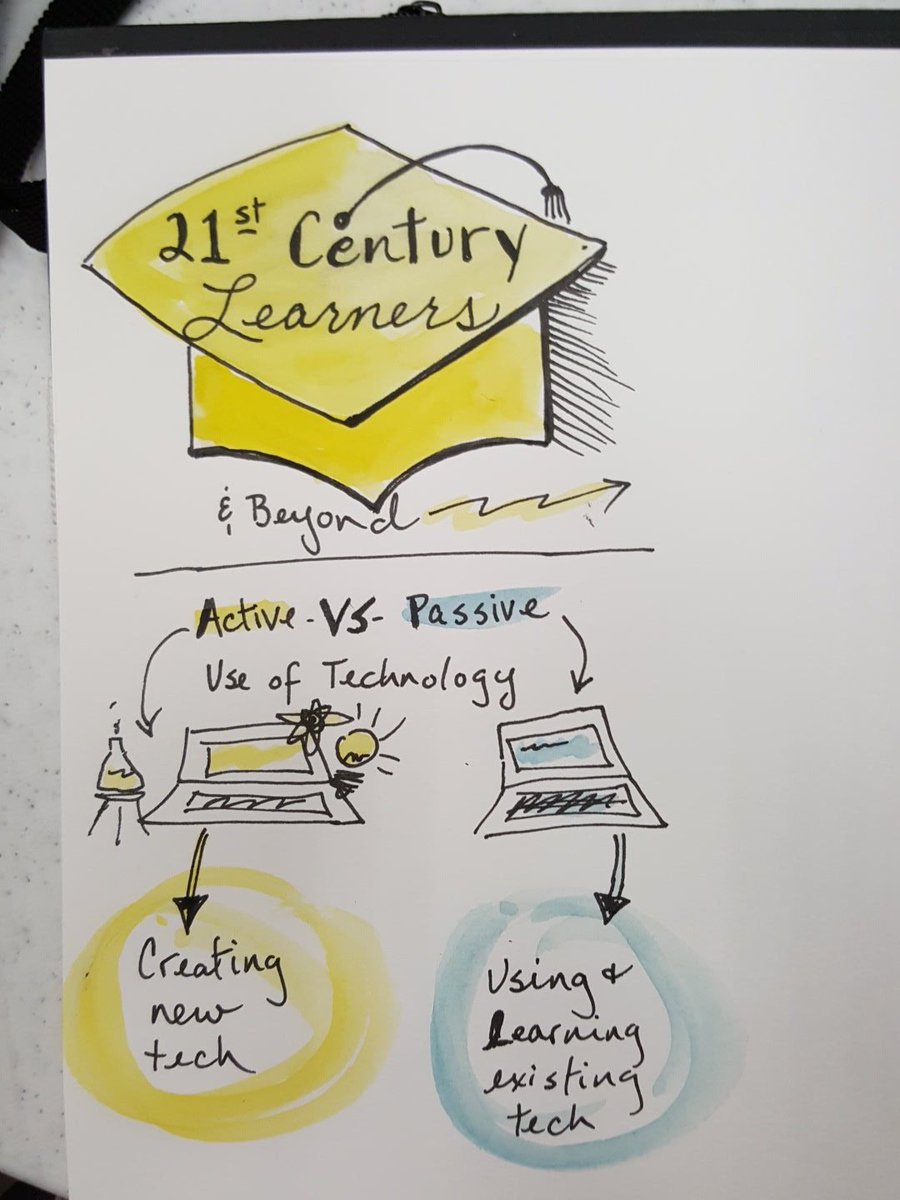 21st Century
Learners
& Beyond
Active - VS - Passive
Use of Technology
Creating
new
tech
Using &
Learning
existing
tech